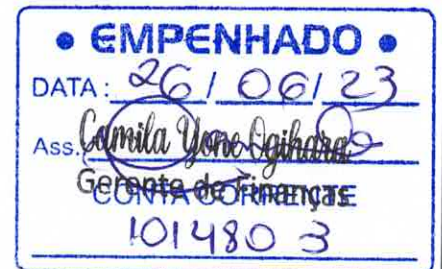 • EMPENHADO •
DATA: 26 / 06 / 23
Ass. Camila Yone Ogihara
Gerente de Finanças
CONTA CORRENTE
101480 3